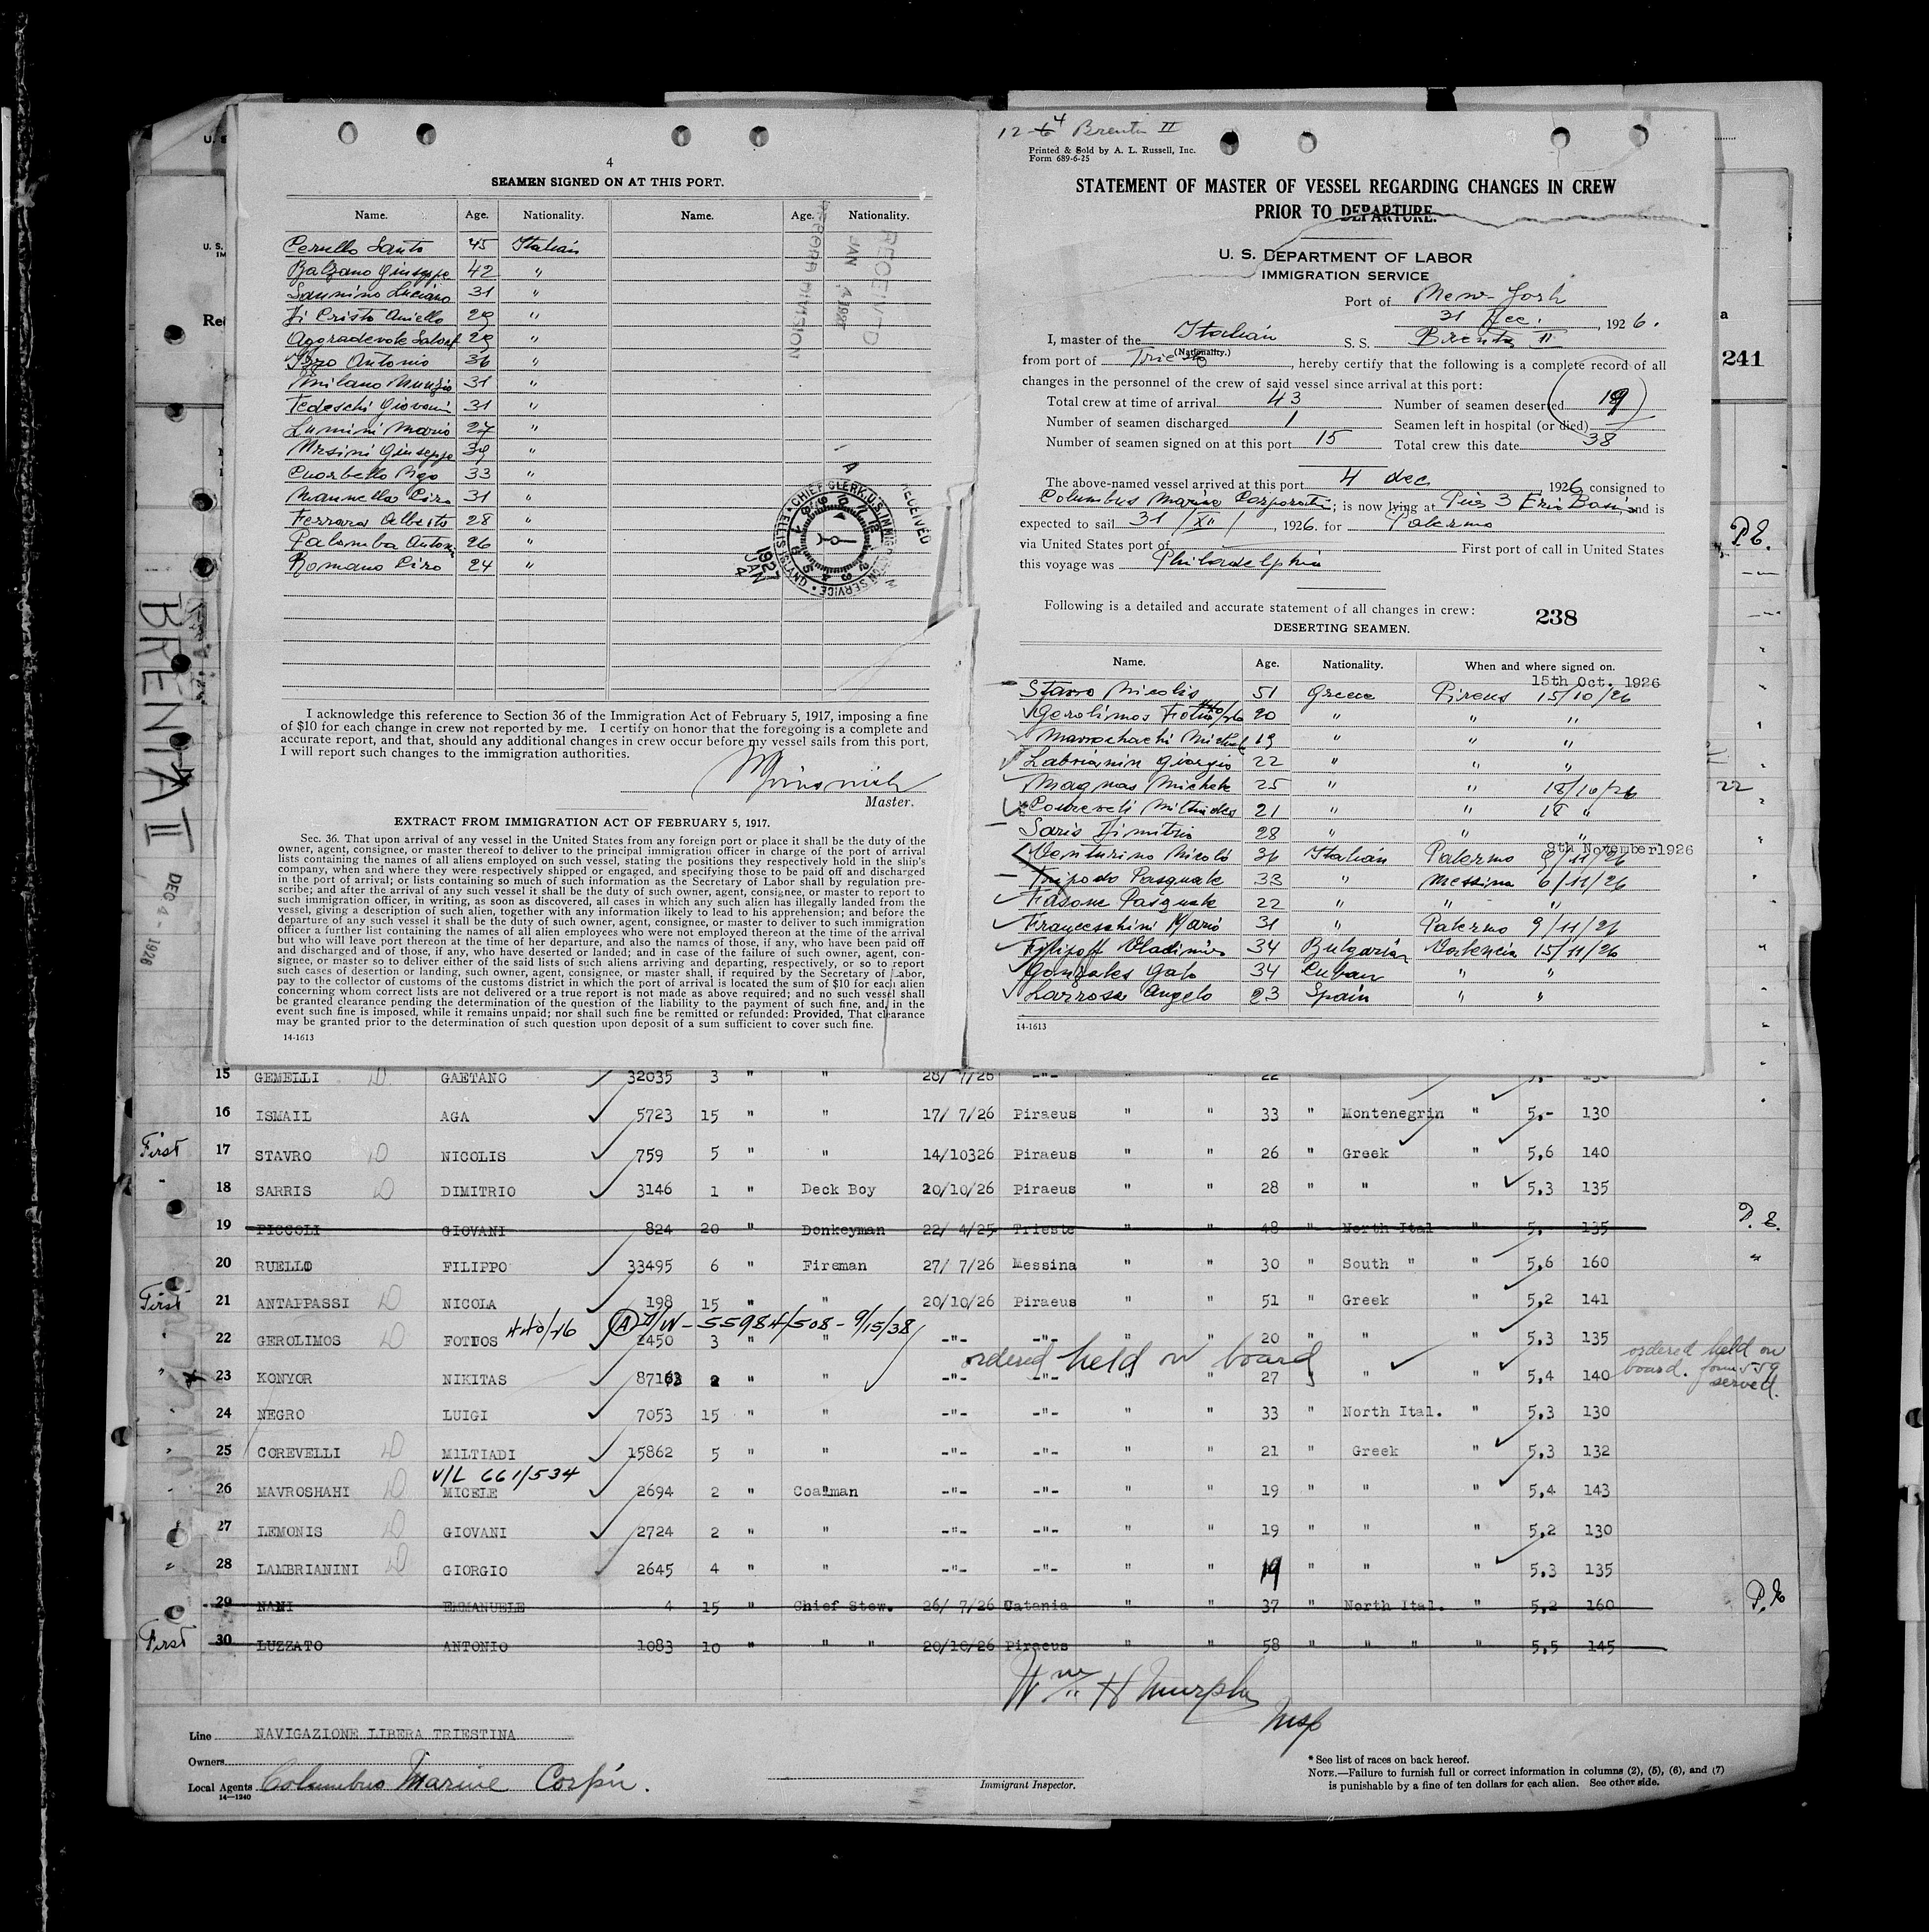 4
SEAMEN SIGNED ON AT THIS PORT.
Name. Age. Nationality. Name. Age. Nationality.
Perullo Santo 45 Italian
Balzano Giuseppe 42 "
Sannino Luciano 31 "
Di Cristo Aniello 29 "
Aggradevole Salvat 29 "
Izzo Antonio 36 "
Milano Nunzio 31 "
Tedeschi Giovani 31 "
Lumini Mario 27 "
Mesini Giuseppe 39 "
33 "
Mannella Ciro 31 "
Ferrara Alberto 28 "
Palomba Antoni 26 "
Romano Ciro 24 "
RECEIVED
JAN 4 1927
DIVISION
CHIEF CLERK, U.S. IMMIGRATION SERVICE ELLIS ISLAND
RECEIVED
1927 JAN 4
I acknowledge this reference to Section 36 of the Immigration Act of February 5, 1917, imposing a fine
of $10 for each change in crew not reported by me. I certify on honor that the foregoing is a complete and
accurate report, and that, should any additional changes in crew occur before my vessel sails from this port,
I will report such changes to the immigration authorities.
Master.
EXTRACT FROM IMMIGRATION ACT OF FEBRUARY 5, 1917.
Sec. 36. That upon arrival of any vessel in the United States from any foreign port or place it shall be the duty of the
owner, agent, consignee, or master thereof to deliver to the principal immigration officer in charge of the port of arrival
lists containing the names of all aliens employed on such vessel, stating the positions they respectively hold in the ship's
company, when and where they were respectively shipped or engaged, and specifying those to be paid off and discharged
in the port of arrival; or lists containing so much of such information as the Secretary of Labor shall by regulation pre-
scribe; and after the arrival of any such vessel it shall be the duty of such owner, agent, consignee, or master to report to
such immigration officer, in writing, as soon as discovered, all cases in which any such alien has illegally landed from the
vessel, giving a description of such alien, together with any information likely to lead to his apprehension; and before the
departure of any such vessel it shall be the duty of such owner, agent, consignee, or master to deliver to such immigration
officer a further list containing the names of all alien employees who were not employed thereon at the time of the arrival
but who will leave port thereon at the time of her departure, and also the names of those, if any, who have been paid off
and discharged and of those, if any, who have deserted or landed; and in case of the failure of such owner, agent, con-
signee, or master so to deliver either of the said lists of such aliens arriving and departing, respectively, or so to report
such cases of desertion or landing, such owner, agent, consignee, or master, shall, if required by the Secretary of Labor,
pay to the collector of customs of the customs district in which the port of arrival is located the sum of $10 for each alien
concerning whom correct lists are not delivered or a true report is not made as above required; and no such vessel shall
be granted clearance pending the determination of the question of the liability to the payment of such fine, and, in the
event such fine is imposed, while it remains unpaid; nor shall such fine be remitted or refunded: Provided, That clearance
may be granted prior to the determination of such question upon deposit of a sum sufficient to cover such fine.
14-1613
12-4 Brenta II
Printed & Sold by A. L. Russell, Inc.
Form 689-6-25
STATEMENT OF MASTER OF VESSEL REGARDING CHANGES IN CREW
PRIOR TO DEPARTURE.
U. S. DEPARTMENT OF LABOR
IMMIGRATION SERVICE
Port of New York
31 Dec., 1926.
I, master of the Italian S. S. Brenta II
(Nationality.)
from port of Trieste, hereby certify that the following is a complete record of all
changes in the personnel of the crew of said vessel since arrival at this port:
Total crew at time of arrival 43 Number of seamen deserted 19
Number of seamen discharged 1 Seamen left in hospital (or died)
Number of seamen signed on at this port 15 Total crew this date 38
The above-named vessel arrived at this port 4 dec 1926 consigned to
Columbus Marine Corporati; is now lying at Pier 3 Erie Basin and is
expected to sail 31/XII/, 1926, for Palermo
via United States port of First port of call in United States
this voyage was Philadelphia
Following is a detailed and accurate statement of all changes in crew:
238
DESERTING SEAMEN.
Name. Age. Nationality. When and where signed on.
15th Oct. 1926
Stavro Nicolis 51 Greece Pireus 15/10/26
Gerolimos Fotios 20 " " "
Mavrochachi Michel 19 " " "
Labrianin Giorgio 22 " " "
Magnas Michele 25 " " 18/10/26
Coureveli Miltiades 21 " " 18 "
Saris Dimitrio 28 " " "
9th November 1926
Venturino Nicolò 36 Italian Palermo 9/11/26
Tripodo Pasquale 33 " Messina 6/11/26
Fasone Pasquale 22 " " "
Franceschini Mario 31 " Palermo 9/11/26
Filipoff Vladimiro 34 Bulgarian Valencia 15/11/26
Gonzales Galo 34 Cuban " "
Larrosa Angelo 23 Spain " "
14-1613
241
P.E.
22
BRENTA II DEC 4 - 1926
15 GEMELLI GAETANO 32035 3 " " 28/ 7/26 -"- " " 22
16 ISMAIL AGA 5723 15 " " 17/ 7/26 Piraeus " " 33 " Montenegrin " 5,- 130
First 17 STAVRO D NICOLIS 759 5 " " 14/10326 Piraeus " " 26 " Greek " 5,6 140
" 18 SARRIS D DIMITRIO 3146 1 " Deck Boy 20/10/26 Piraeus " " 28 " " " 5,3 135
19 PICCOLI GIOVANI 824 20 " Donkeyman 22/ 4/25 Trieste " " 48 " North Ital " 5,- 135 P.E.
20 RUELLO FILIPPO 33495 6 " Fireman 27/ 7/26 Messina " " 30 " South " " 5,6 160 "
First 21 ANTAPPASSI D NICOLA 198 15 " " 20/10/26 Piraeus " " 51 " Greek " 5,2 141
440/46 (A) I/W - 55984/508 - 9/15/38
22 GEROLIMOS D FOTIOS 2450 3 " " -"- -"- " " 20 " " " 5,3 135
ordered held on board
ordered held on board. form 559 served.
" 23 KONYOR NIKITAS 87163 2 " " -"- -"- " " 27 " " " 5,4 140
24 NEGRO LUIGI 7053 15 " " -"- -"- " " 33 " North Ital. " 5,3 130
" 25 COREVELLI D MILTIADI 15862 5 " " -"- -"- " " 21 " Greek " 5,3 132
V/L 661/534
" 26 MAVROSHAHI D MICELE 2694 2 " Coalman -"- -"- " " 19 " " " 5,4 143
" 27 LEMONIS D GIOVANI 2724 2 " " -"- -"- " " 19 " " " 5,2 130
" 28 LAMBRIANINI D GIORGIO 2645 4 " " -"- -"- " " 19 " " " 5,3 135
29 NANI EMMANUELE 4 15 " Chief Stew. 26/ 7/26 Catania " " 37 " North Ital. " 5,2 160 P.E
First 30 LUZZATO ANTONIO 1083 10 " " " 20/10/26 Piraeus " " 58 " " " " 5,5 145
Wm H Murphy
Insp
Line NAVIGAZIONE LIBERA TRIESTINA
Owners
Local Agents Columbus Marine Corp'n.
14—1240
Immigrant Inspector.
* See list of races on back hereof.
NOTE.—Failure to furnish full or correct information in columns (2), (5), (6), and (7)
is punishable by a fine of ten dollars for each alien. See other side.